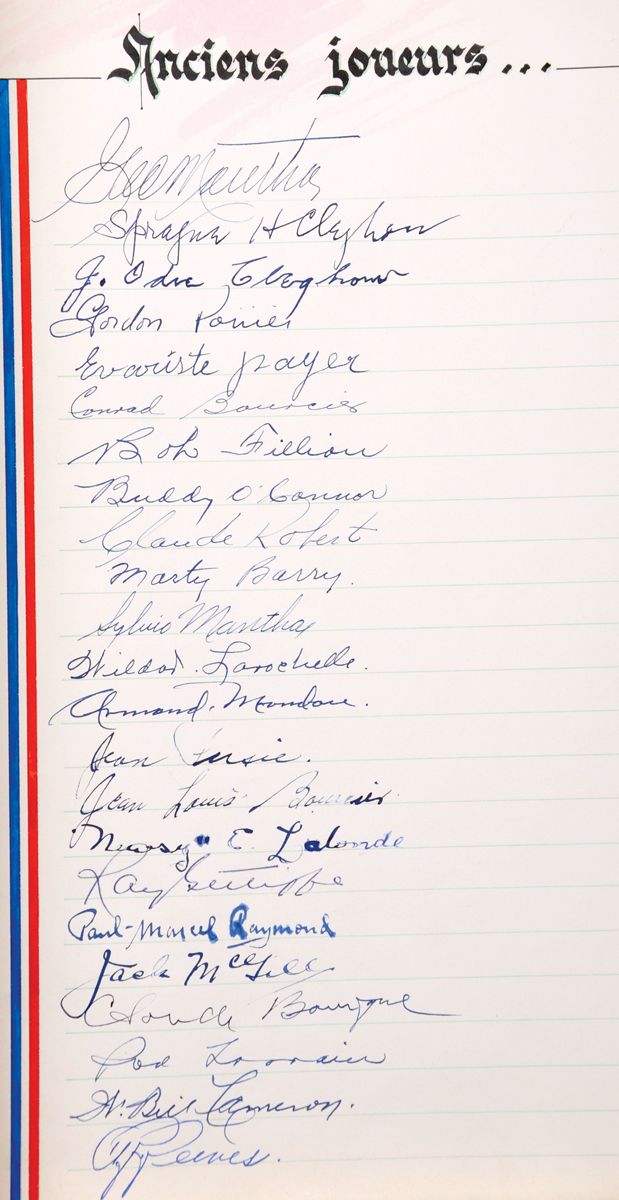 Anciens joueurs...
Geo Mantha
Sprague H Cleghorn
J. Odie Cleghorn
Gordon Poirier
Evariste payer
Conrad Bourcier
Bob Fillion
Buddy O'Connor
Claude Robert
Marty Barry.
Sylvio Mantha
Wildor. Larochelle.
Armond. Mondou.
Jean Pusie.
Jean Louis Bourcier
"Newsy" E. Lalonde
Ray Getliffe
Paul-Marcel Raymond
Jack McGill
Claude Bourque
Rod Lorrain
W. Bill Cameron.